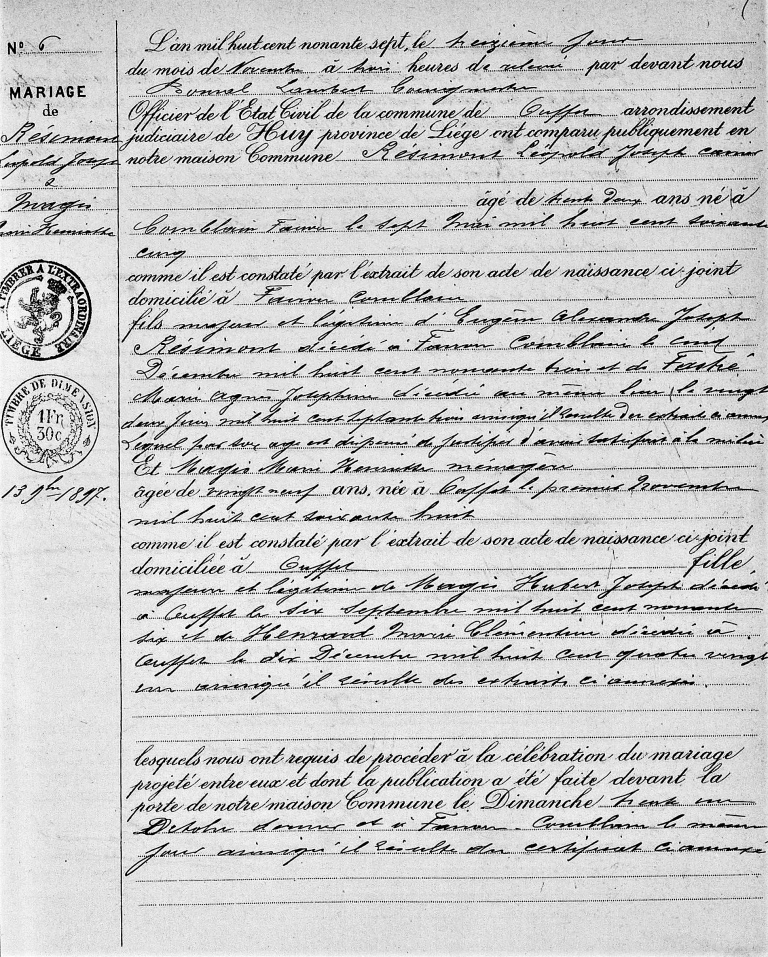 N° 6
MARIAGE
de
Résimont
Léopold Joseph
&
Magis
Marie Henriette
TIMBRER A L'EXTRAORDINAIRE
LIEGE
TIMBRE DE DIMENSION
1Fr
30c
13 9bre 1897.
L'an mil huit cent nonante sept, le treizième jour
du mois de Novembre à trois heures de relevée par devant nous
Lambert Bourgmestre
Officier de l'Etat Civil de la commune de Ouffet arrondissement
judiciaire de Huy province de Liège ont comparu publiquement en
notre maison Commune Résimont Léopold Joseph carrier
âgé de trente deux ans né à
Comblain Fairon le sept Mai mil huit cent soixante
cinq
comme il est constaté par l'extrait de son acte de naissance ci-joint
domicilié à Fairon Comblain
fils majeur et légitime d'Eugène Alexandre Joseph
Résimont décédé à Fairon Comblain le cinq
Décembre mil huit cent nonante trois et de
Marie Agnès Josephine décédée au même lieu le vingt
deux Juin mil huit cent septante trois ainsi qu'il résulte des extraits ci annexés
Lequel par son age est dispensé de justifier d'avoir satisfait à la milice
Et Magis Marie Henriette ménagère
âgée de vingt neuf ans, née à Ouffet le premier Novembre
mil huit cent soixante huit
comme il est constaté par l'extrait de son acte de naissance ci-joint
domiciliée à Ouffet fille
majeure et légitime de Magis Hubert Joseph décédé
à Ouffet le six Septembre mil huit cent nonante
six et de Henrard Marie Clémentine décédée à
Ouffet le dix Décembre mil huit cent quatre vingt
un ainsi qu'il résulte des extraits ci annexés.
lesquels nous ont requis de procéder à la célébration du mariage
projeté entre eux et dont la publication a été faite devant la
porte de notre maison Commune le Dimanche trente un
Octobre dernier et à Fairon-Comblain le même
jour ainsi qu'il résulte du certificat ci annexé